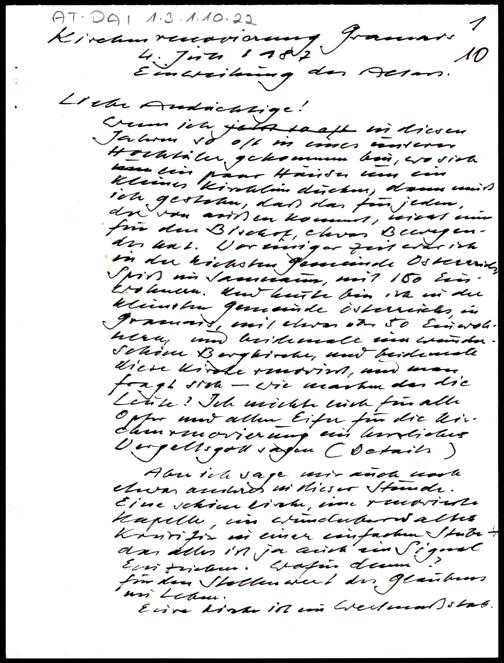 AT-DAI 1.3.1.10.22
1
Kirchenrenovierung Gramais
10
4. Juli 1987
Einweihung des Altars.
Liebe Andächtige!
Wenn ich jetzt so oft in diesen
Jahren so oft in eines unserer
Hochtäler gekommen bin, wo sich
ein paar Häuser um ein
kleines Kirchlein ducken, dann muß
ich gestehn, daß das für jeden,
der von außen kommt, nicht nur
für den Bischof, etwas Bewegen-
des hat. Vor einiger Zeit war ich
in der höchsten Gemeinde Österreichs
Spiß im Samnaun, mit 180 Ein-
wohnern. Und heute bin ich in der
kleinsten Gemeinde Österreichs, in
Gramais, mit etwas über 50 Einwoh-
nern, und beidemale ein wunder-
schöne Bergkirche, und beidemale
diese Kirche renoviert, und man
fragt sich – wie machen das die
Leute? Ich möchte euch für alle
Opfer und allen Eifer für die Kir-
chenrenovierung ein herzliches
Vergeltsgott sagen (Details)
Aber ich sage mir auch noch
etwas anderes in dieser Stunde.
Eine schöne Kirche, eine renovierte
Kapelle, ein wunderbares altes
Kruzifix in einer einfachen Stube –
das alles ist ja auch ein Signal
Ein Zeichen. Wofür denn?
für den Stellenwert des Glaubens
im Leben.
Eine Kirche ist ein Wertmaßstab.